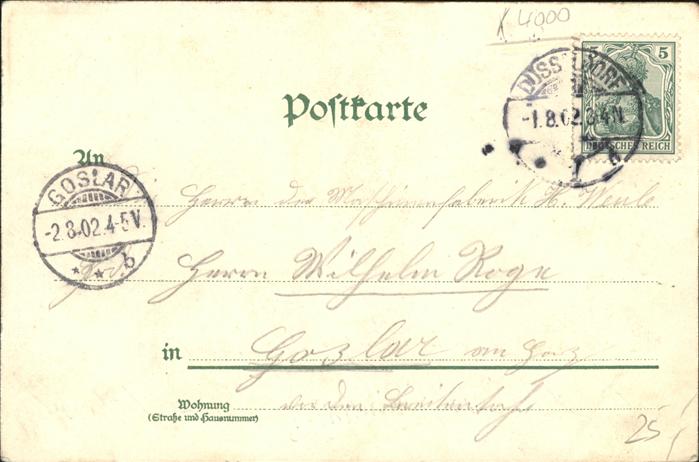 K 4000
5
DÜSSELDORF
-1.8.02.3-4N.
DEUTSCHES REICH
Postkarte
An
GOSLAR
-2.8.02.4-5V.
* * b
Herrn der Maschinenfabrik H. Weule
Herrn Wilhelm Roge
in Goslar am Harz
Wohnung
(Straße und Hausnummer)
25